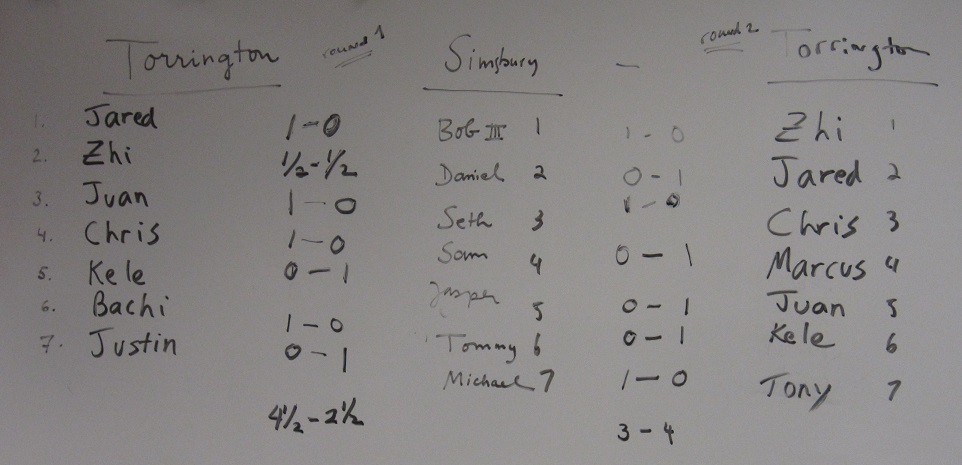 Torrington round 1 Simsbury — round 2 Torrington
1. Jared 1-0 Bob III 1 1-0 Zhi 1
2. Zhi ½-½ Daniel 2 0-1 Jared 2
3. Juan 1-0 Seth 3 1-0 Chris 3
4. Chris 1-0 Sam 4 0-1 Marcus 4
5. Kele 0-1 Jasper 5 0-1 Juan 5
6. Bachi 1-0 Tommy 6 0-1 Kele 6
7. Justin 0-1 Michael 7 1-0 Tony 7
4½-2½ 3-4